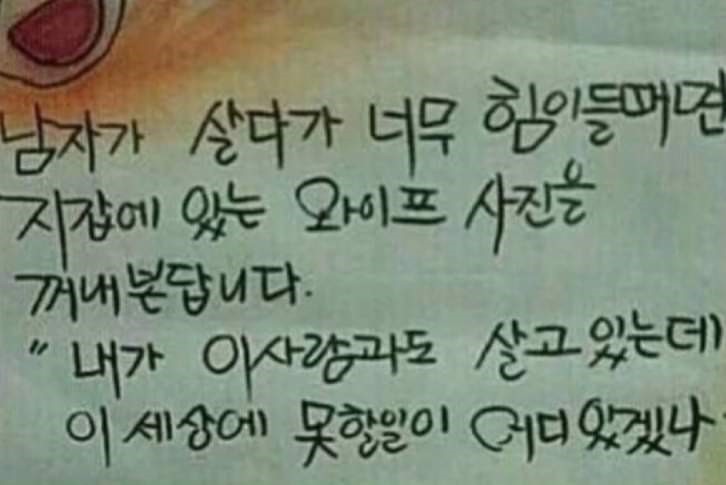 남자가 살다가 너무 힘이들때면
지갑에 있는 와이프 사진을
꺼내본답니다.
" 내가 이사람과도 살고있는데
이 세상에 못할일이 어디있겠나